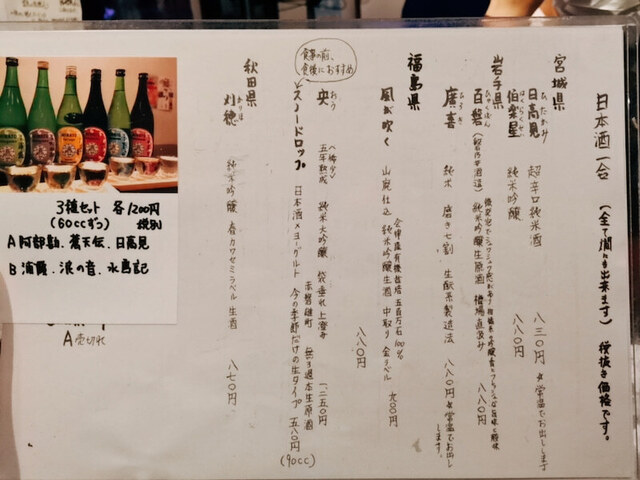 日本酒一合 (全て燗も出来ます) 税抜き価格です。
宮城県
日高見 ひたかみ 超辛口純米酒 八三〇円 ★常温でお出しします
伯楽星 純米吟醸 八八〇円
岩手県
百磐 ひゃくばん (磐乃井酒造) 純米吟醸生原酒 槽場直汲み 八八〇円
廣喜 ひろき 純米 磨き七割 生酛系製造法 八八〇円 ★常温でお出しします。
福島県
風が吹く 山廃仕込 純米吟醸生酒 中取り 金ラベル 九〇〇円
会津産有機栽培 五百万石100%
八八〇円
央 おう 五年熟成 純米大吟醸 袋垂れ 上澄み 一二五〇円
赤磐雄町 無濾過本生原酒
食事の前、食後におすすめ
スノードロップ 日本酒×ヨーグルト 今の季節だけの生タイプ 五八〇円
(90cc)
秋田県
刈穂 かりほ 純米吟醸 春カワセミラベル 生酒 八七〇円
3種セット 各1200円
(60ccずつ) 税別
A 阿部勘、蒼天伝、日高見
B 浦霞、浪の音、水鳥記
A 売切れ